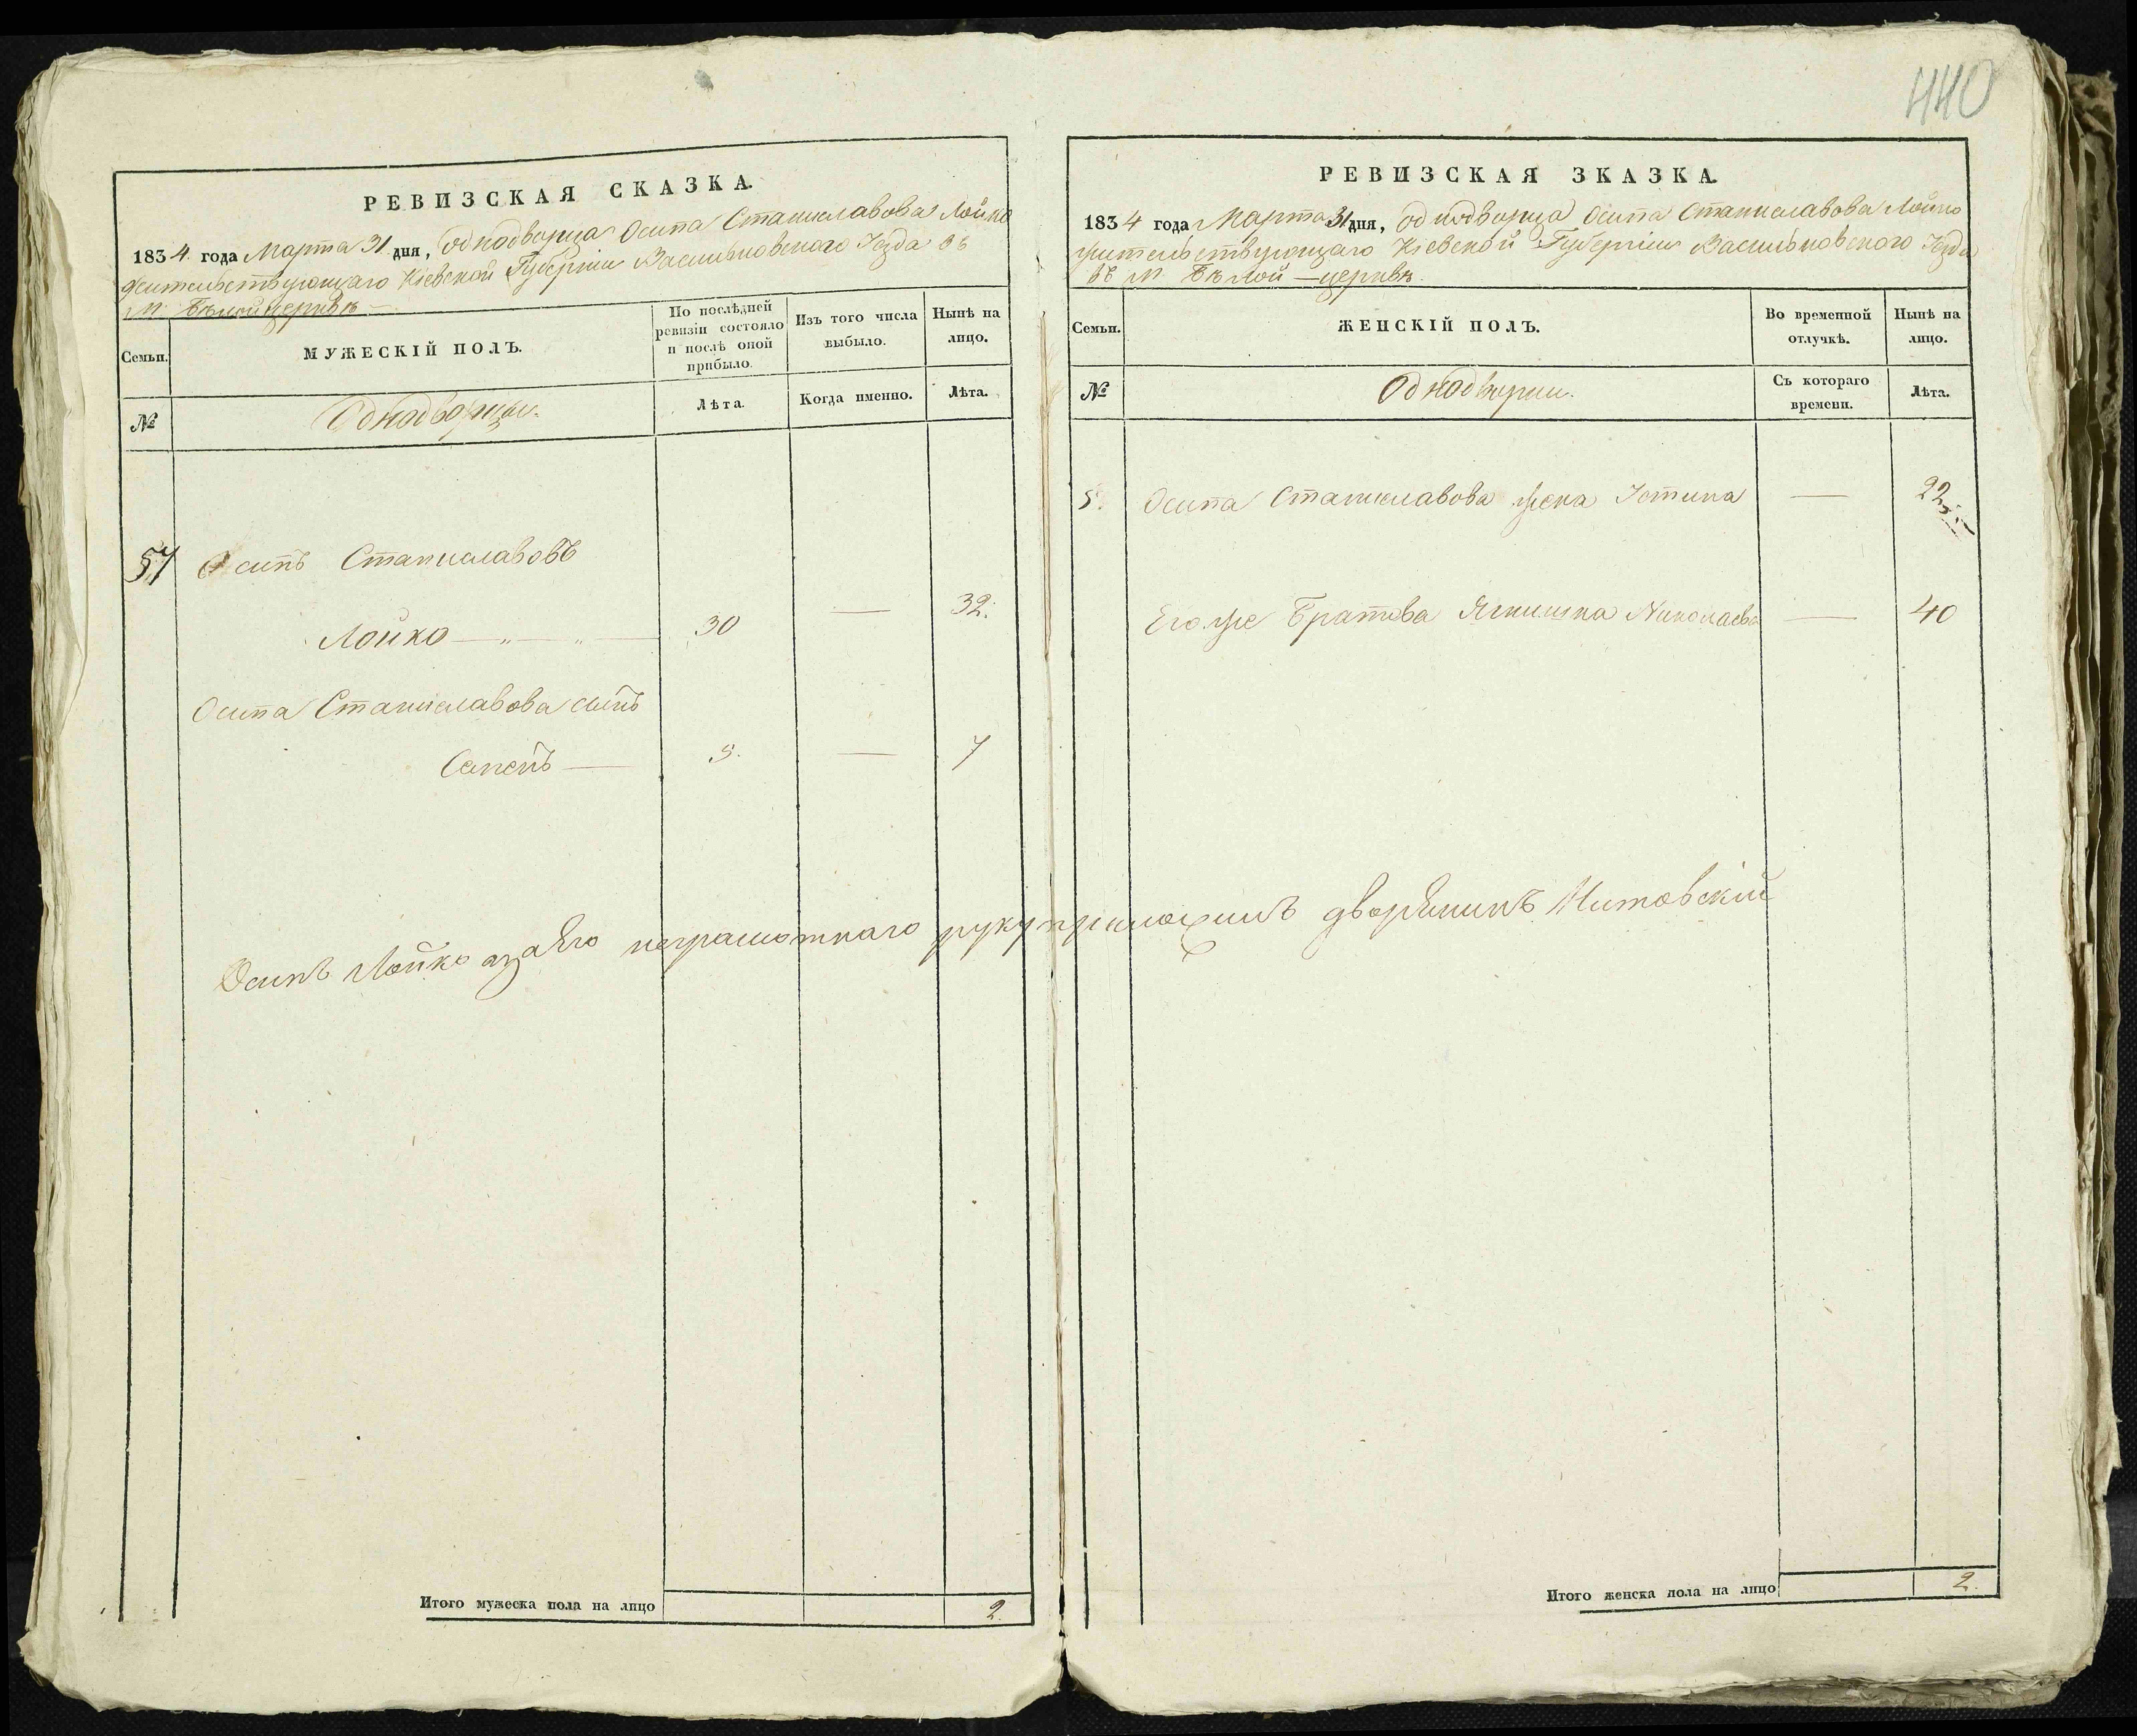 440
РЕВИЗСКАЯ СКАЗКА.
1834 года Марта 31 дня, однодворца Осипа Станиславова Лойко
жительствующаго Кіевской Губерніи Васильковского Уезда въ
м. Бѣлойцерквѣ
Семьи.
МУЖЕСКІЙ ПОЛЪ.
По послѣдней ревизіи состояло и послѣ оной прибыло.
Изъ того числа выбыло.
Нынѣ на лицо.
№
Однодворцы.
Лѣта.
Когда именно.
Лѣта.
57 Осипъ Станиславовъ
Лойко — „ — „ — 30 — 32.
Осипа Станиславова сынъ
Семенъ — 5. — 7
Осипъ Лойко азаЯго неграмотнаго руку приложилъ дворянинъ Митовскій
Итого мужеска пола на лицо 2.
РЕВИЗСКАЯ ЗКАЗКА.
1834 года Марта 31 дня, однодворца Осипа Станиславова Лойко
жительствующаго Кіевской Губерніи Васильковского Уезда
въ м Бѣлой—церквѣ.
Семьи.
ЖЕНСКІЙ ПОЛЪ.
Во временной отлучкѣ.
Нынѣ на лицо.
№
Однодворки.
Съ котораго времени.
Лѣта.
5. Осипа Станиславова жена Устина — 22
Его же Братова Ягнишка Николаева — 40
Итого женска пола на лицо 2.